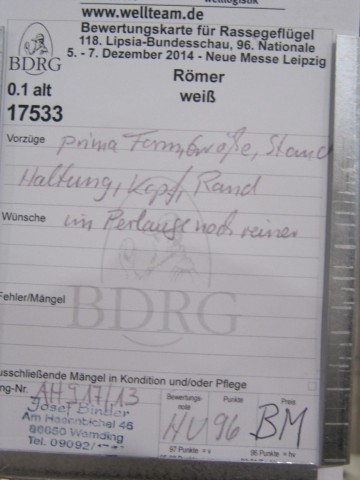 www.wellteam.de
Bewertungskarte für Rassegeflügel
118. Lipsia-Bundesschau, 96. Nationale
5. - 7. Dezember 2014 - Neue Messe Leipzig
BDRG
Römer
weiß
0.1 alt
17533
Vorzüge prima Form, Größe, Stand
Haltung, Kopf, Rand
Wünsche im Perlauge noch reiner
BDRG
Fehler/Mängel
usschließende Mängel in Kondition und/oder Pflege
ng-Nr. AH 917, 13
Josef Binder
Am Hasenbichel 46
86650 Wemding
Tel. 09092/
Bewertungs-
note
Punkte
Preis
HV 96 BM
97 Punkte = v
96 Punkte = hv